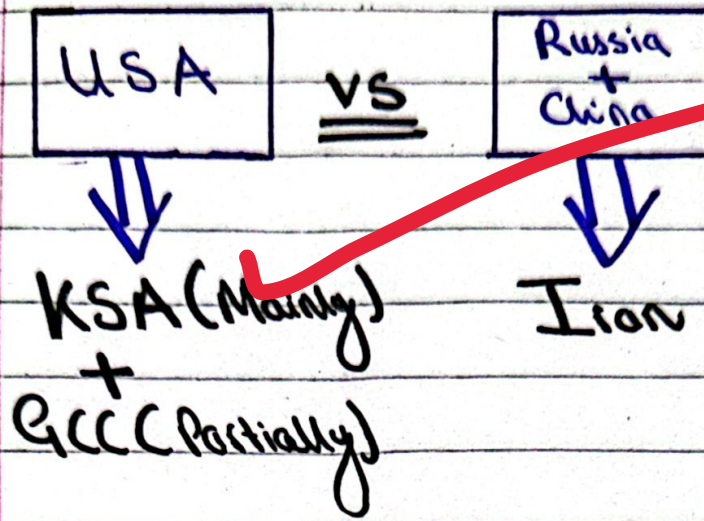 USA
VS
Russia
+
China
KSA (Mainly)
+
GCC (Partially)
Iran